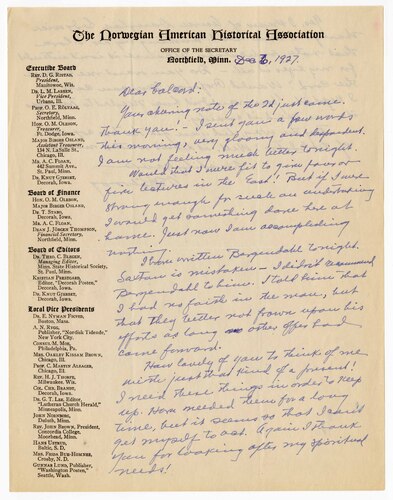 The Norwegian American Historical Association
OFFICE OF THE SECRETARY
Northfield, Minn. Dec 6, 1927.
Executive Board
REV. D. G. RISTAD,
President,
Manitowoc, Wis.
DR. L. M. LARSEN,
Vice President,
Urbana, Ill.
PROF. O. E. RÖLVAAG,
Secretary,
Northfield, Minn.
HON. O. M. OLESON,
Treasurer,
Ft. Dodge, Iowa.
MAJOR BIRGER OSLAND,
Assistant Treasurer,
134 N. La Salle St.
Chicago, Ill.
MR. A. C. FLOAN,
442 Summit Ave.,
St. Paul, Minn.
DR. KNUT GJERSET,
Decorah, Iowa.
Board of Finance
HON. O. M. OLESON,
MAJOR BIRGER OSLAND,
DR. T. STABO,
Decorah, Iowa.
MR. A. C. FLOAN,
DEAN J. JÖRGEN THOMPSON,
Financial Secretary,
Northfield, Minn.
Board of Editors
DR. THEO. C. BLEGEN,
Managing Editor,
Minn. State Historical Society,
St. Paul, Minn.
KRISTIAN PRESTGARD,
Editor, "Decorah Posten,"
Decorah, Iowa.
DR. KNUT GJERSET,
Decorah, Iowa.
Local Vice Presidents
A. N. RYGG,
Publisher, "Nordisk Tidende,"
New York City.
Philadelphia, Pa.
MRS. OAKLEY KISSAM BROWN,
Chicago, Ill.
PROF. C. MARTIN ALSAGER,
Chicago, Ill.
REV. H. J. THORPE,
Milwaukee, Wis.
COL. CHR. BRANDT,
Decorah, Iowa.
DR. G. T. LEE, Editor,
"Lutheran Church Herald,"
Minneapolis, Minn.
JOHN NORNBORG,
Duluth, Minn.
REV. JOHN BROWN, President,
Concordia College,
Moorhead, Minn.
HANS USTRUD,
Baltic, S. D.
MRS. FRIDA BUE-HOMNES,
Crosby, N. D.
GUNNAR LUND, Publisher,
"Washington Posten,"
Seattle, Wash.
Dear Colcord:
Your cheering note of the 2d just came.
Thank you. – I sent you a few words
this morning, very gloomy and despondent.
I am not feeling much better tonight.
Would that I were fit to give four or
five lectures in the East! But if I were
strong enough for such an undertaking
I would get something done here at
home. Just now I am accomplishing
nothing.
I have written Borgendahl tonight.
Saxton is mistaken – I did not recommend
Borgendahl to him. I told him that
I had no faith in the man, but
that they better not frown upon his
efforts as long as no other offer had
come forward.
How lovely of you to think of me
with just that kind of a present!
I need these things in order to keep
up. Have needed them for a long
time, but it seems so that I can't
get myself to act. Again I thank
you for looking after my spiritual
needs!